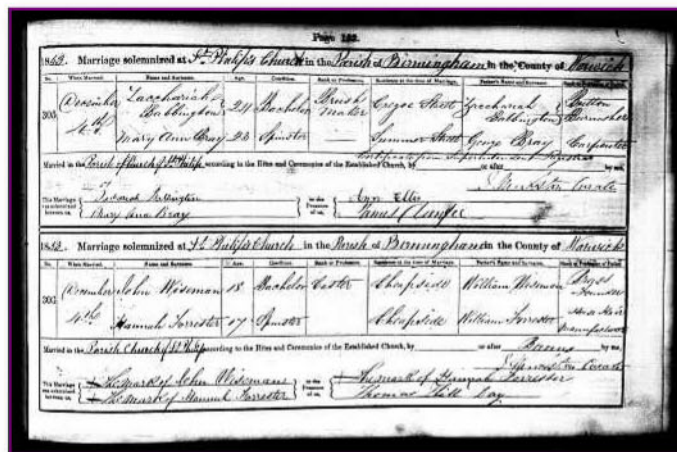 Page 153.
1842. Marriage solemnized at St. Philip's Church in the Parish of Birmingham in the County of Warwick
No. When Married. Name and Surname. Age. Condition. Rank or Profession. Residence at the time of Marriage. Father's Name and Surname. Rank or Profession of Father.
305 December 4th Zacchariah Babbington 24 Bachelor Brush Maker Cregoe Street Zacchariah Babbington Button Burnisher
Mary Ann Bray 23 Spinster — Summer Street George Bray Carpenter
Married in the Parish Church of St. Philip according to the Rites and Ceremonies of the Established Church, by or after Certificate from Superintendent Registrar by me,
Curate
This Marriage was solemnized between us, Babbington Mary Ann Bray in the Presence of us, Ann Ellis James
1842. Marriage solemnized at St. Philip's Church in the Parish of Birmingham in the County of Warwick
No. When Married. Name and Surname. Age. Condition. Rank or Profession. Residence at the time of Marriage. Father's Name and Surname. Rank or Profession of Father.
306 December 4th John Wiseman 18 Bachelor Caster Cheapside William Wiseman
Hannah Forrester 17 Spinster Cheapside William Forrester
Married in the Parish Church of St. Philip according to the Rites and Ceremonies of the Established Church, by or after Banns by me,
Curate
This Marriage was solemnized between us, X The mark of John Wiseman X The mark of Hannah Forrester in the Presence of us, X The mark of Hannah Forrester Thomas